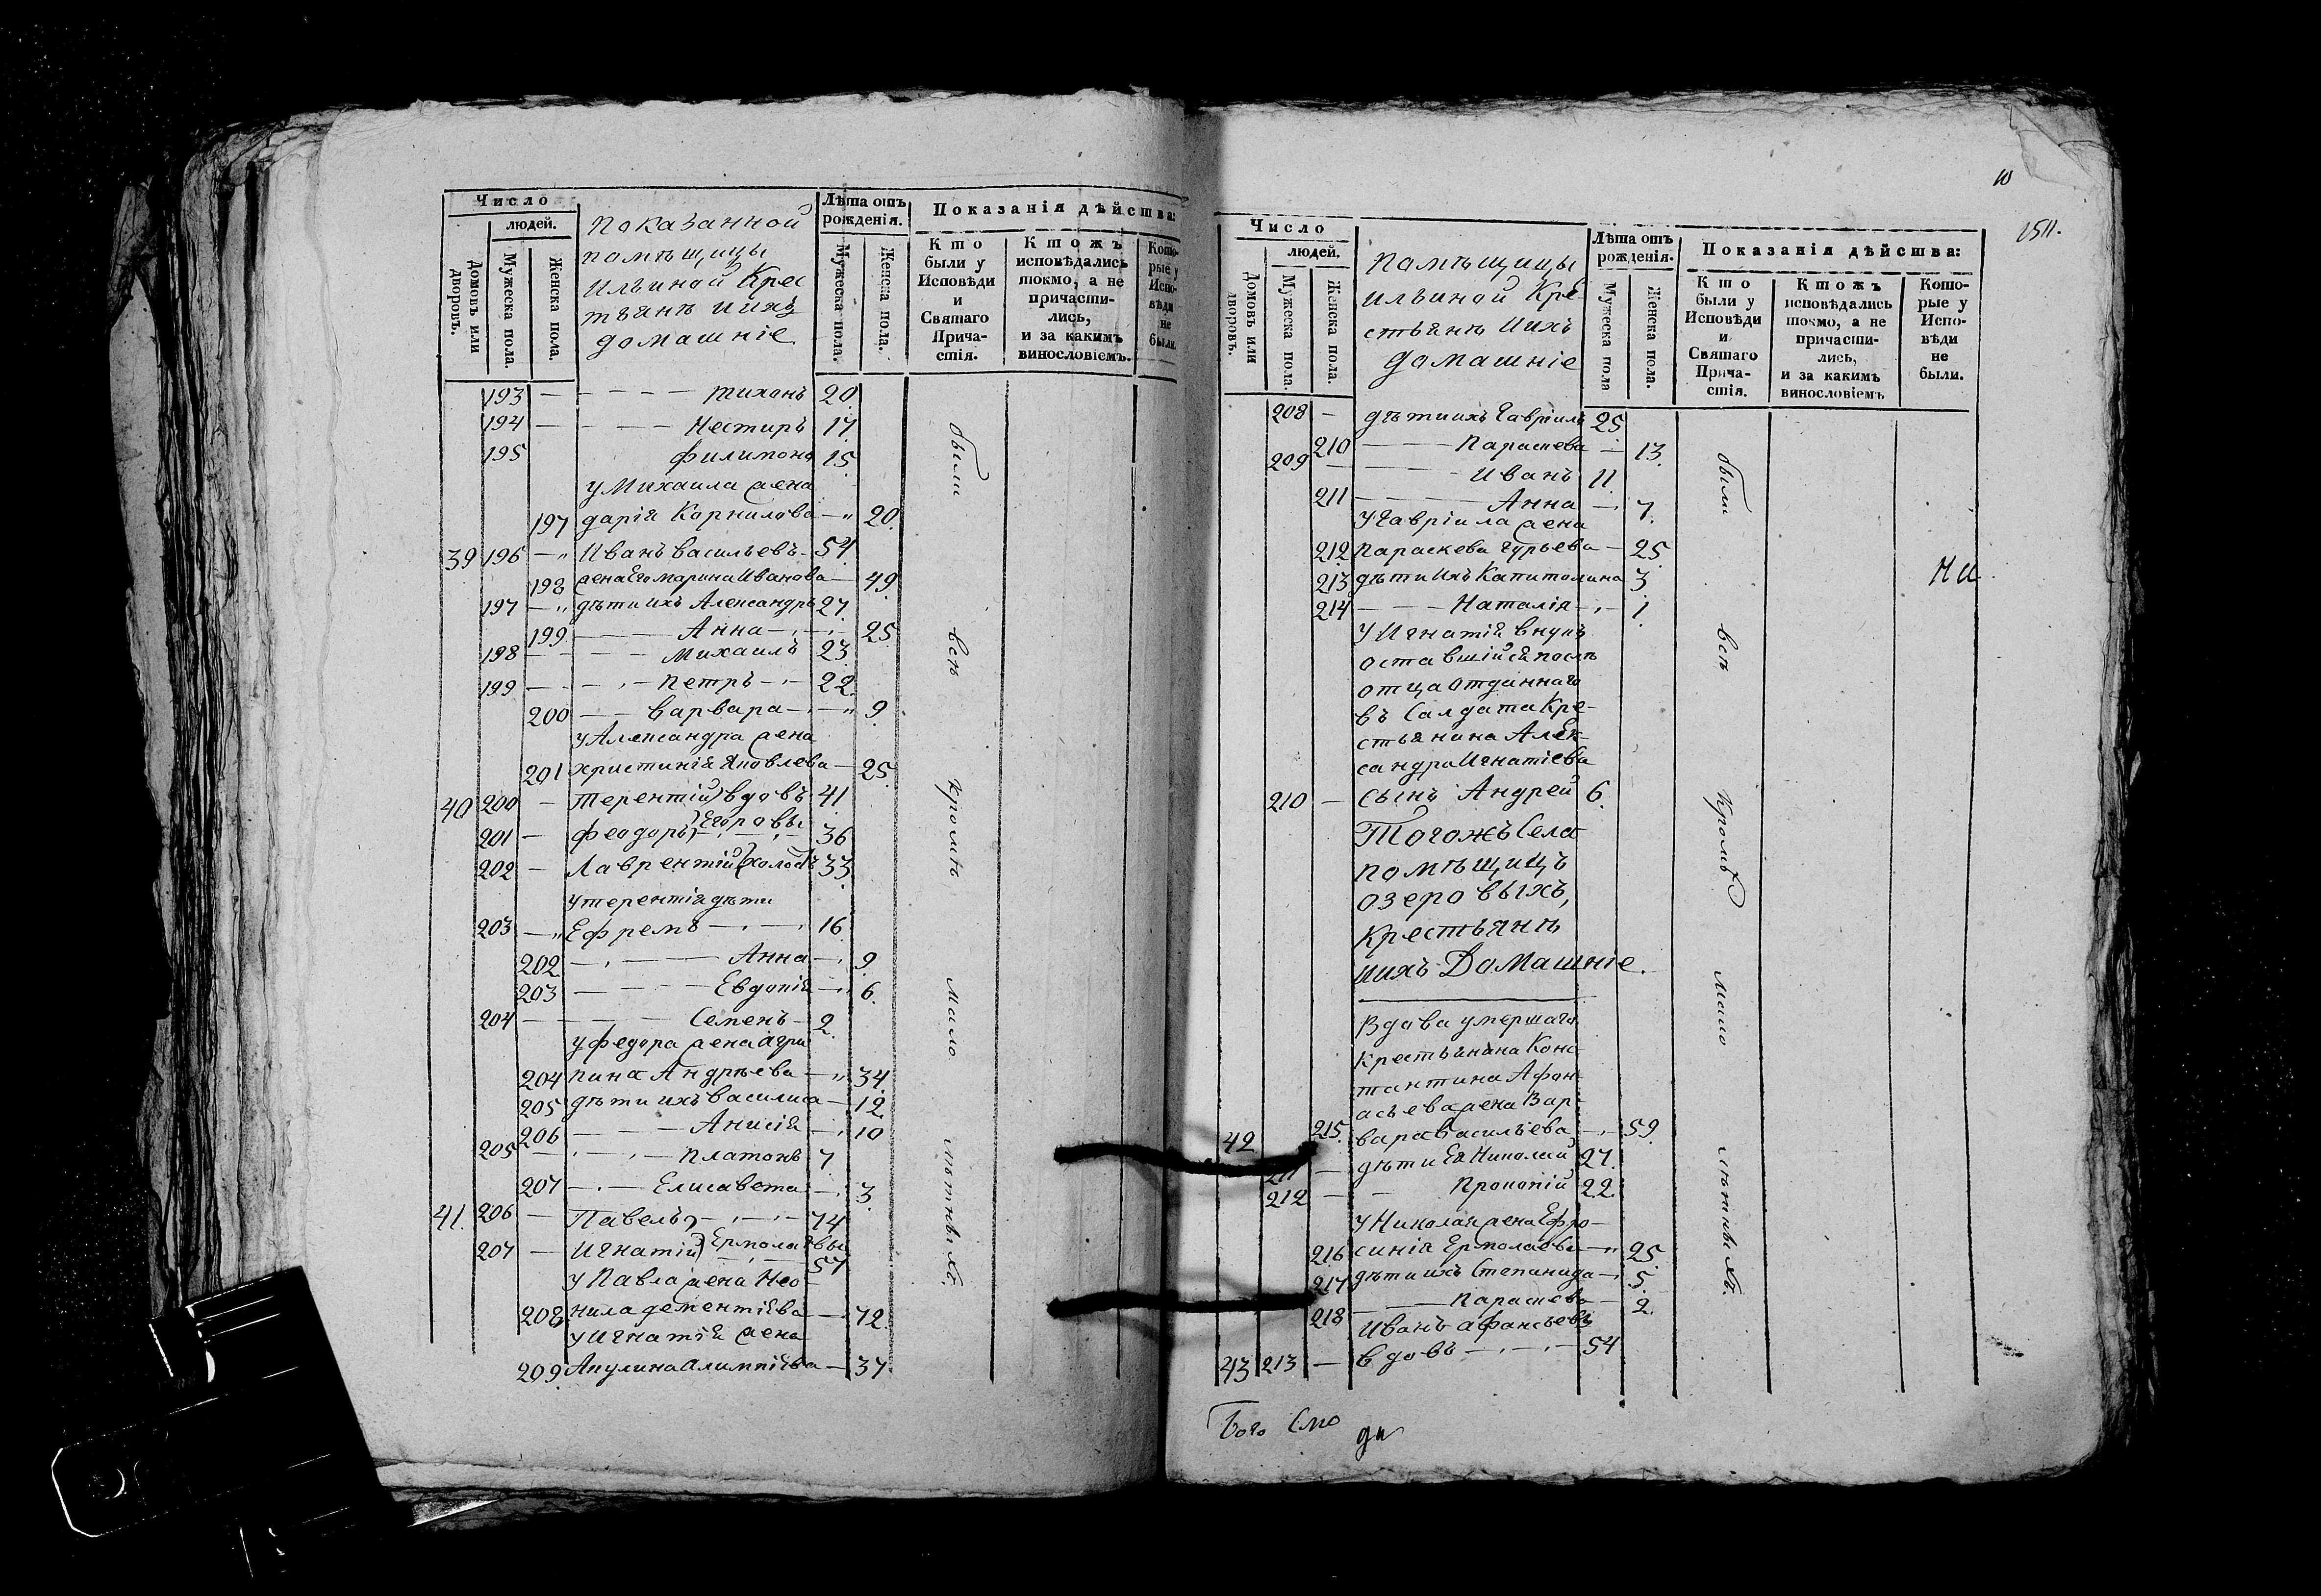 Число
людей.
Домовъ или дворовъ.
Мужеска пола.
Женска пола.
Показанной
помѣщицы
Ильиной Крес
тьянъ иихъ
домашніе
Лѣта отъ рожденія.
Мужеска пола.
Женска пола.
Показанія дѣйства:
Кто были у Исповѣди и Святаго Причастія.
Ктожъ исповѣдались токмо, а не причастились, и за какимъ винословіемъ.
Которые у Исповѣди не были.
193 — Тихонъ 20
194 — Нестиръ 17
195 Филимонъ 15
у Михаила жена
197 дарія Корнилова — 20
39 196 — Иванъ Васильевъ 54
198 жена Его Марина Иванова — 49
197 — дѣти ихъ Александръ 27
199 — Анна — 25
198 — Михаилъ 23
199 — Петръ — 22
200 — Варвара — 9
у Александра жена
201 Христинія Яковлева — 25
40 200 — Терентій вдовъ 41
Егоровы
201 — Феодоръ — 36
202 — Лаврентій холостъ 33
у терентія дѣти
203 — Ефремъ — 16
202 — Анна — 9
203 — Евдокія — 6
204 — Семенъ — 2
у Федора жена Агри
204 пина Андрѣева — 34
205 дѣти ихъ Василиса — 12
206 — Анисія — 10
205 — Платонъ 7
207 — Елисавета — 3
41 206 — Павелъ — 74
207 — Игнатій Ермолаевы 57
у Павла жена Нео
208 нила дементіева — 72
у Игнатія жена
209 Акулина Алимпіева — 37
были всѣ кромѣ мало лѣтнѣихъ
10
1511.
Число
людей.
Домовъ или дворовъ.
Мужеска пола.
Женска пола.
Помѣщицы
Ильиной Кре
стьянъ иихъ
домашніе
Лѣта отъ рожденія.
Мужеска пола
Женска пола.
Показанія дѣйства:
Кто были у Исповѣди и Святаго Причастія.
Ктожъ исповѣдались токмо, а не причастились, и за какимъ винословіемъ
Которые у Исповѣди не были.
208 — дѣти ихъ Гавріилъ 25
210 — Параскева — 13
209 — Иванъ 11
211 — Анна — 7
у Гавріила жена
212 Параскева Гурьева — 25
213 дѣти ихъ Капитолина 3
214 — Наталія — 1
у Игнатія внукъ
оставшійся послѣ
отца отданнаго
въ Салдата Кре-
стьянина Алек-
сандра Игнатіева
210 — сынъ Андрей 6
Тогожъ Села
помѣщицъ
озеровыхъ,
Крестьянъ
иихъ Домашніе.
Вдова умершаго
крестьянина Конс-
тантина Афон-
асьева жена Вар-
42 215 вара Васильева — 59
211 — дѣти Ея Николай 27
212 — Прокопій 22
у Николая жена Ефро-
216 синія Ермолаева — 25
217 дѣти ихъ Степанида — 5
218 — Параскева — 2
Иванъ афонсьевъ
43 213 — вдовъ — 54
были всѣ Кромѣ мало лѣтнѣихъ
ди